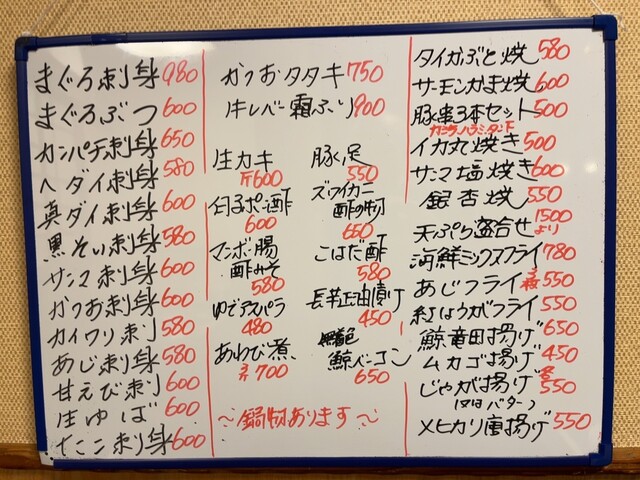 まぐろ刺身 980
まぐろぶつ 600
カンパチ刺身 650
ヘダイ刺身 580
真ダイ刺身 600
黒そい刺身 580
サンマ刺身 600
かつお刺身 600
カイワリ刺 580
あじ刺身 580
甘えび刺 600
生ゆば 600
たこ刺身 600
かつおタタキ 750
牛レバー霜ふり 900
生カキ
600
白子ポン酢
600
マンボー腸
酢みそ
580
ゆでアスパラ
480
あわび煮
700
豚足
550
ズワイカニ
酢の物
650
こはだ酢
580
長芋正油漬け
450
鯨ベーコン
650
〜鍋物あります〜
タイかぶと焼 580
サーモンかま焼 600
豚串3本セット 500
カシラ、ハラミ、タン下
イカ丸焼き 500
サンマ塩焼き 600
銀杏焼 550
天ぷら盛合せ 1500より
海鮮ミックスフライ 780
あじフライ 550
紅しょうがフライ 550
鯨竜田揚げ 650
ムカゴ揚げ 450
じゃが揚げ 550
(又はバター)
メヒカリ唐揚げ 550